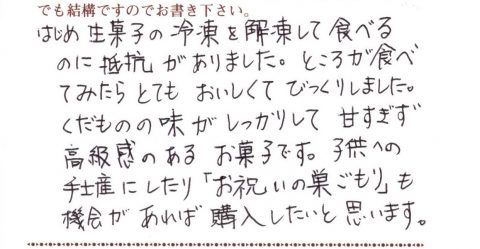 でも結構ですのでお書き下さい。
はじめ生菓子の冷凍を解凍して食べる
のに抵抗がありました。ところが食べ
てみたらとてもおいしくてびっくりしました。
くだものの味がしっかりして甘すぎず
高級感のあるお菓子です。子供への
手土産にしたり「お祝いの巣ごもり」も
機会があれば購入したいと思います。